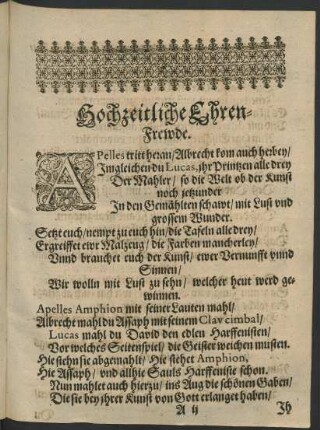 Hochzeitliche Ehren-
Frewde.
APelles tritt heran/Albrecht kom auch herbey/
Jmgleichen du Lucas, jhr Printzen alle drey
Der Mahler/ so die Welt ob der Kunst
noch jetzunder
Jn den Gemählten schawt/ mit Lust vnd
grossem Wunder.
Setzt euch/nempt zu euch hin/die Tafeln alle drey/
Ergreiffet ewr Malzeug/ die Farben mancherley/
Vnnd brauchet euch der Kunst/ ewer Vernunfft vnnd
Sinnen/
Wir wolln mit Lust zu sehn/ welcher heut werd ge-
winnen.
Apelles Amphion mit seiner Lauten mahl/
Albrecht mahl du Assaph mit seinem Clavcimbal/
Lucas mahl du David den edlen Harffenisten/
Vor welches Seitenspiel/ die Geister weichen musten.
Hie stehn sie abgemahlt/ Hie stehet Amphion,
Hie Assaph/ vnd allhie Sauls Harffeniste schon.
Nun mahlet auch hierzu/ ins Aug die schönen Gaben/
Die sie bey jhrer Kunst von Gott erlanget haben/
A ij Jh